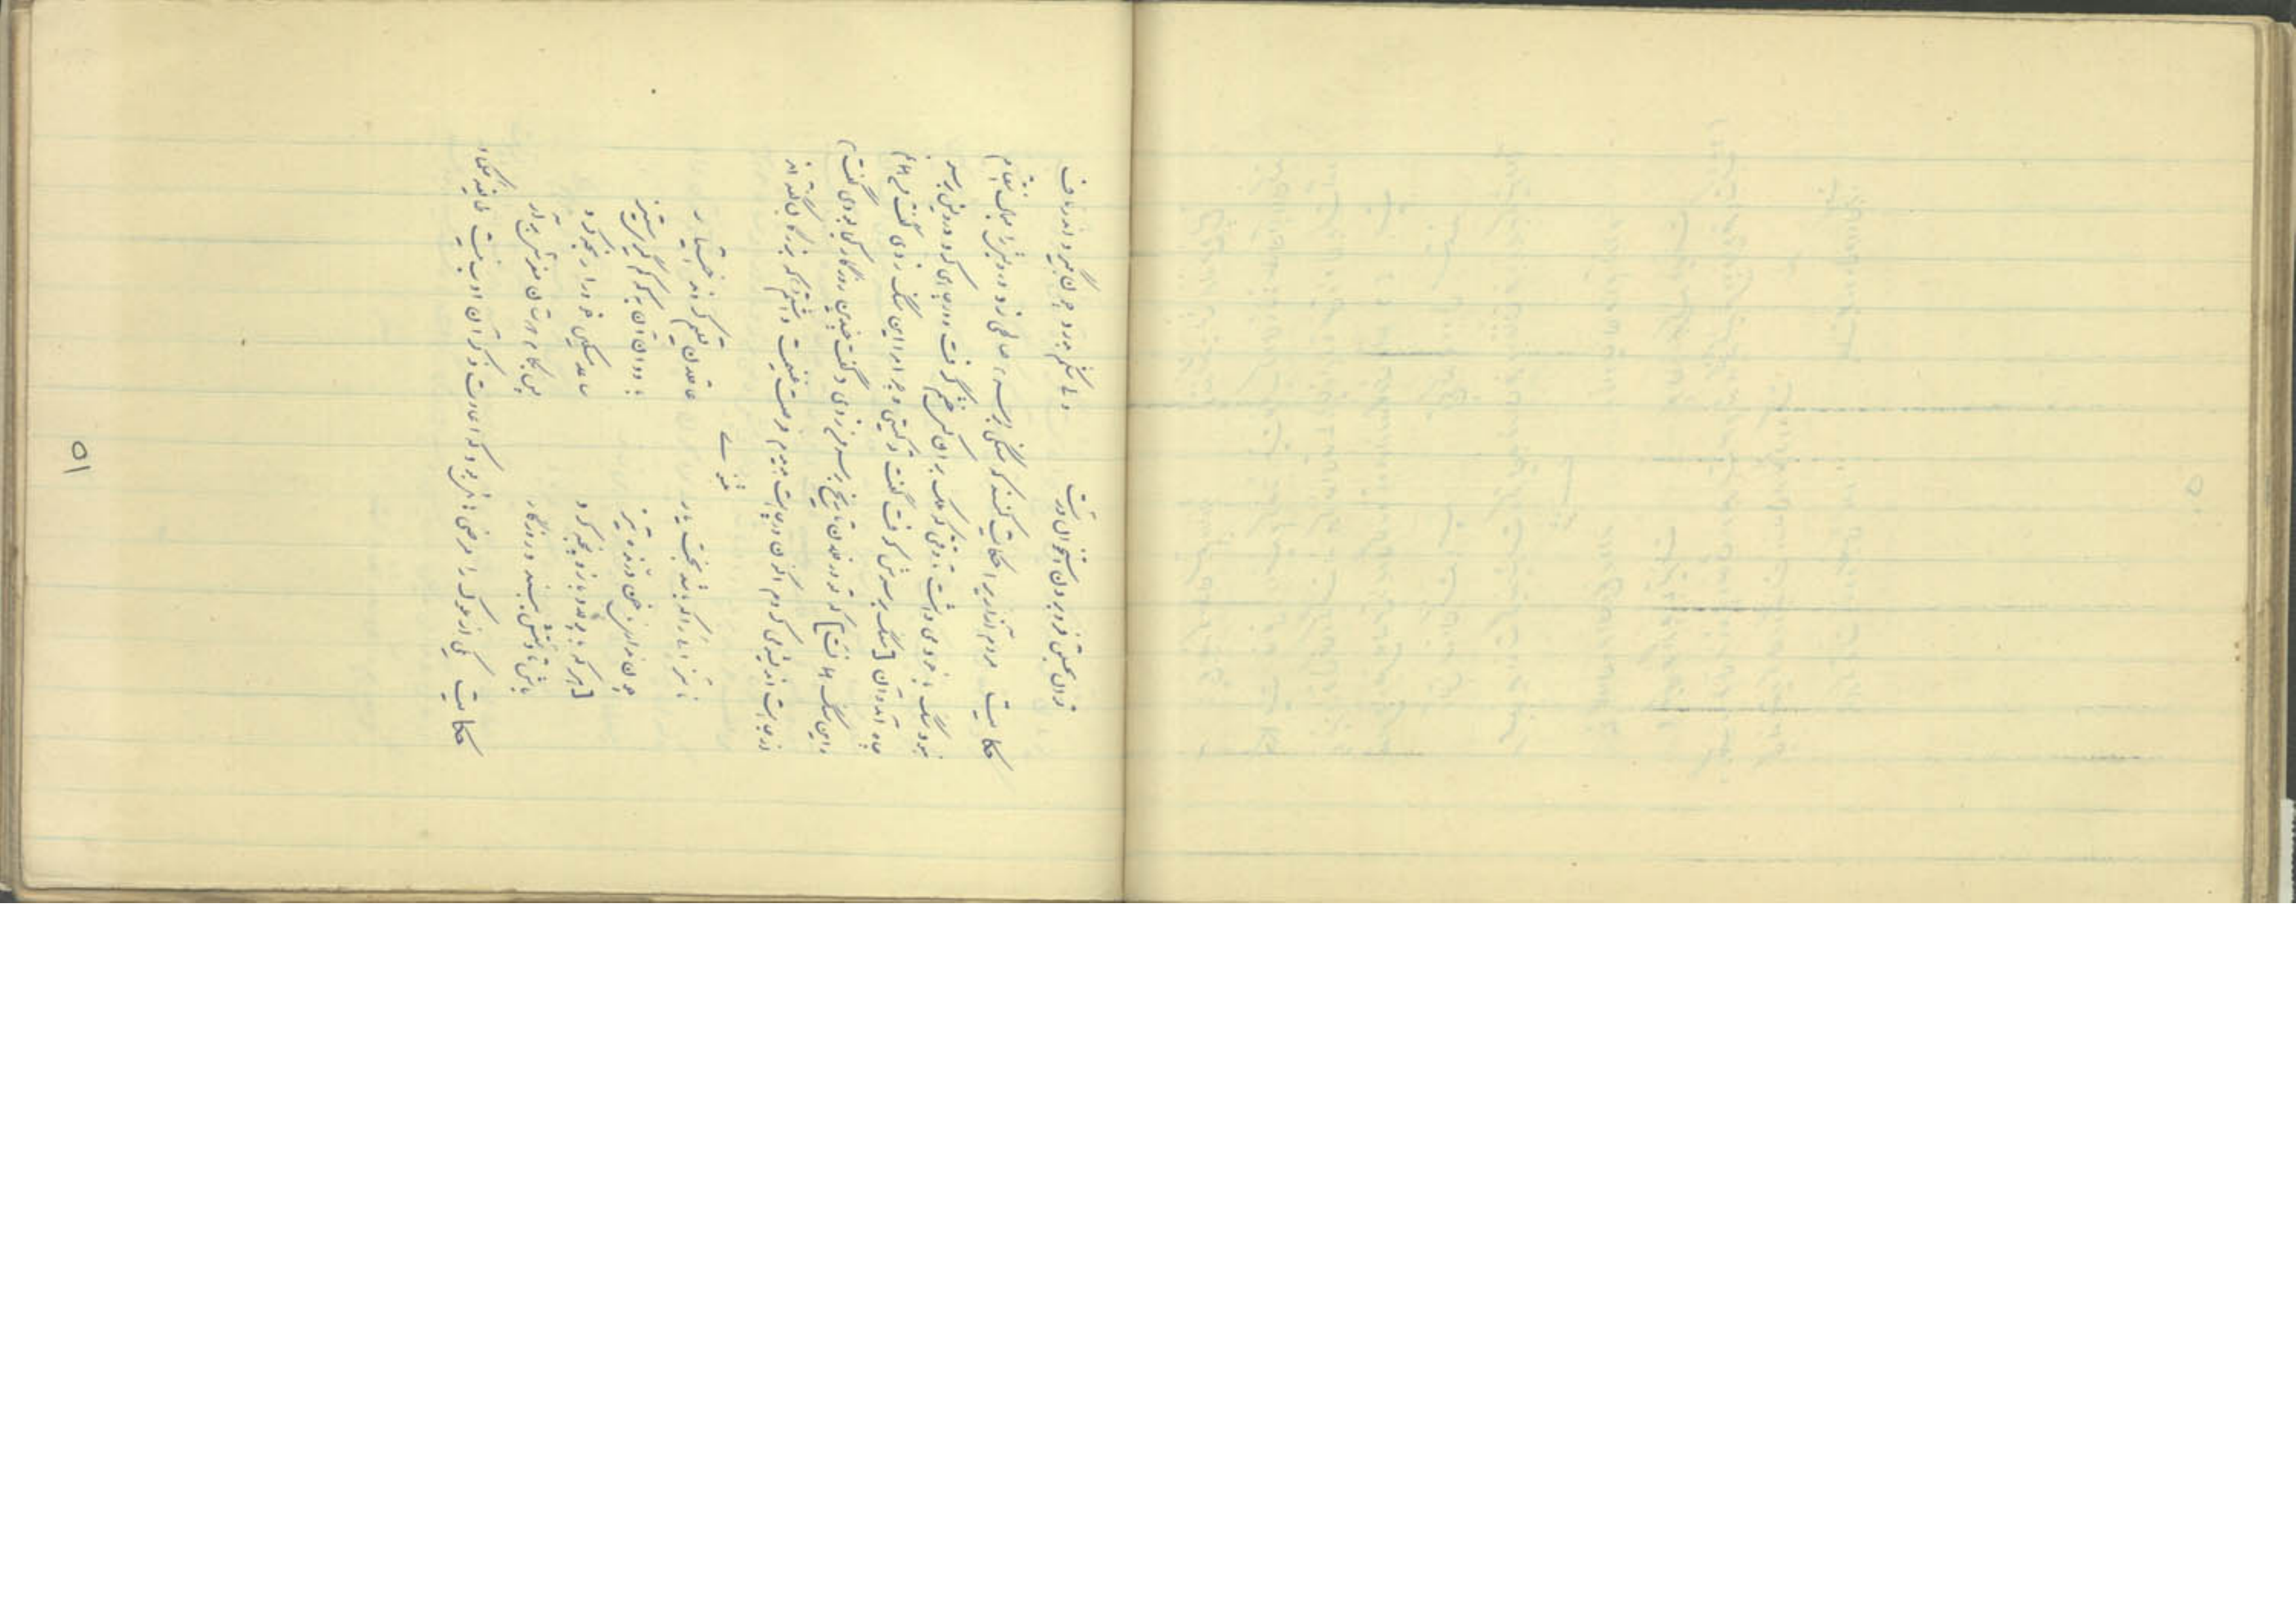 توان بحلق فرو بردن استخوان درشت ولی شکم بدرد چون بگیرد اندر ناف
حکایت مردم آزاریرا حکایت کنند که سنگی بر سر صالحی زد و درویش را مجال انتقام
نبود سنگ با خود می داشت تا وقتی که ملک بران کس خشم گرفت و در چاهی کرد درویش بر سر
چاه آمد و آن [سنگ بر سرش کوفت گفت تو کیستی و چرا مرا این سنگ زدی گفت من فلانم
و این سنگ همانست] که تو در فلان تاریخ بر سر من زدی و گفت چندین روزگار کجا بودی گفت
از جاهت اندیشه می کردم اکنون در چاهت دیدم فرصت غنیمت دانستم که بزرگان گفته اند
مثنوی
ناسزائی را که باشد بخت یار عاقلان تسلیم کردند اختیار
چون نداری ناخن درنده تیز با ددان آن به که کم گیری ستیز
[هر که با پولاد بازو پنجه کرد ساعد مسکین خود را رنجه کرد
باش تا دستش ببندد روزگار پس بکام دوستان مغزش برآر
حکایت یکی از ملوک را مرضی هایل بود که اعادت ذکر آن ادب نیست طایفه حکماء
۵۱